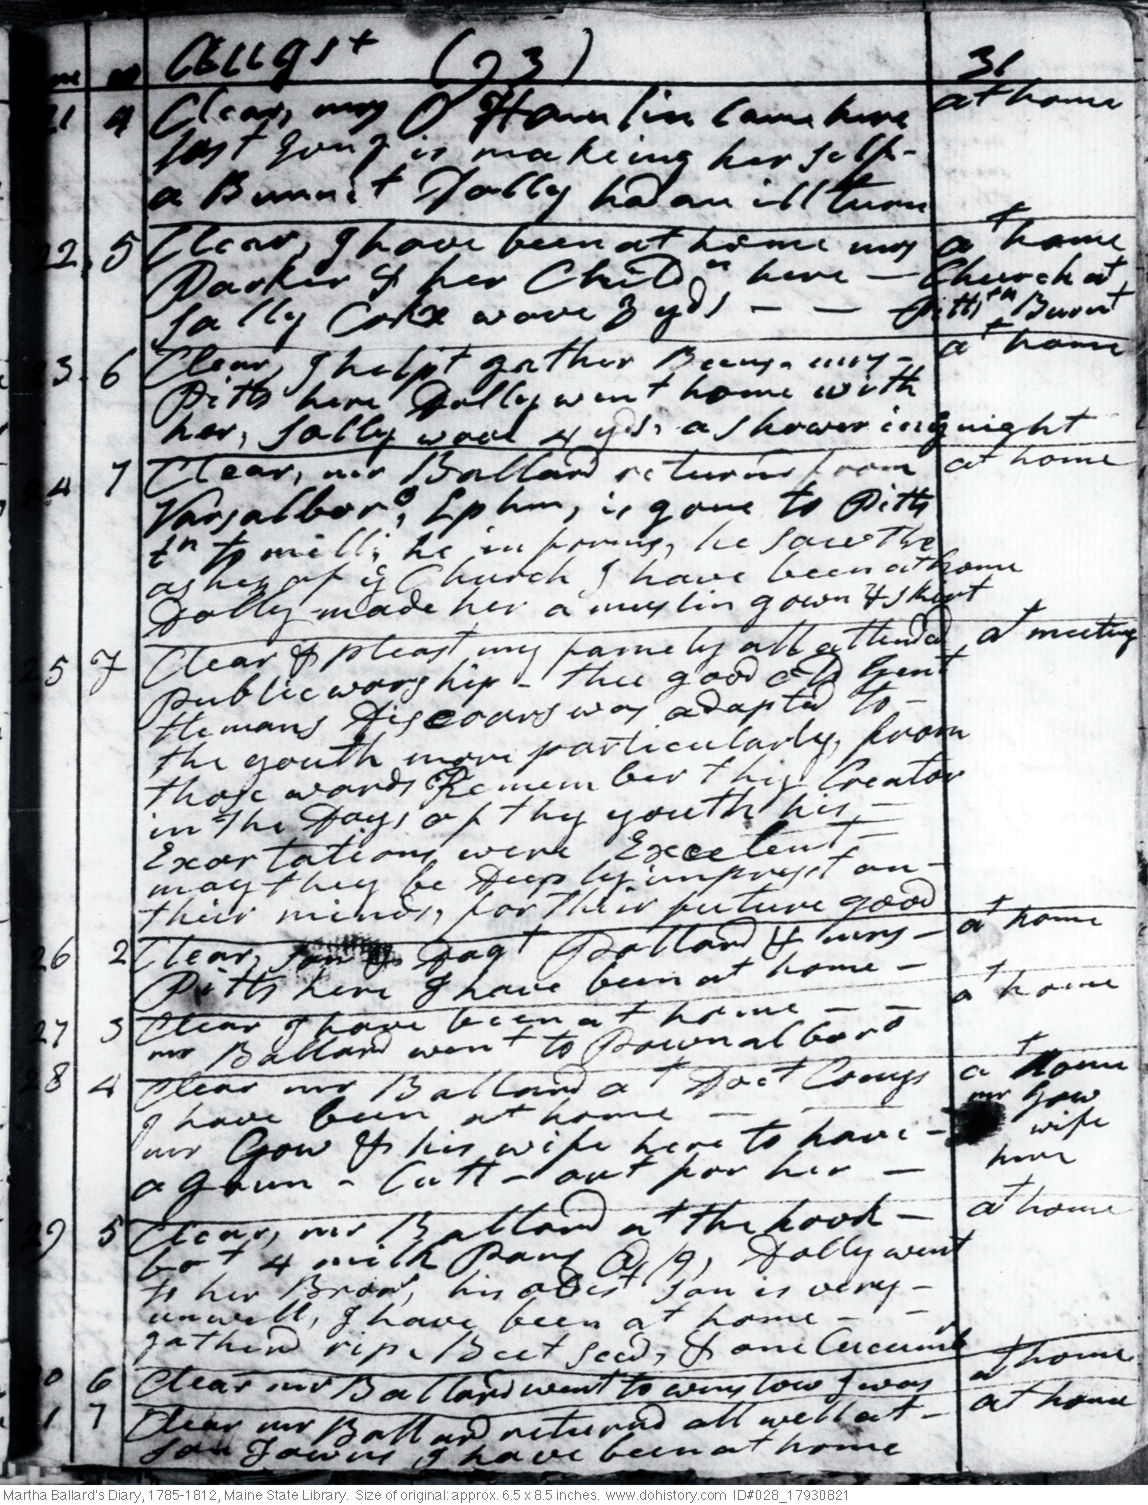 Augst (93) 31
21 4 Clear, mrs Hamlin came here at home
is making her self
a Bunnit Dolly had an ill turn
22 5 Clear, I have been at home mrs at home
Parker & her Childn here - Church at
Sally Cox wove 3 yds - - Pittstn Burnt
23 6 Clear, I helpt gather Beens. mrs - at home
Pitts here Dolly went home with
her, Sally wove 4 yds, a shower in ye night
24 7 Clear, mr Ballard returnd from at home
Vasalboro, Ephm, is gone to Pitts
tn to mill, he informs, he saw the
ashes of ye Church I have been at home
Dolly made her a muslin gown & skirt
25 7 Clear & pleast my famely all attended at meeting
public worship - thee good old Gent
lemans Discoars was adapted to -
the youth more particularly, from
those words Remember thy Creator
in the Days of thy youth his -
Exortations were Excelent -
may they be Deeply imprest on -
their minds, for their future good
26 2 Clear, Dagt Pollard & mrs - at home
Pitts here I have been at home -
27 3 Clear I have been at home - at home
mr Ballard went to Pownalboro
28 4 Clear mr Ballard at Doct Conys at home
I have been at home - - mr Gow
mr Gow & his wife here to have - wife
a gown - Cutt - out for her - here
29 5 Clear, mr Ballard at the hook - at home
bot 4 milk Pans @ /9, Dolly went
to her Brors, his oldest son is very -
unwell, I have been at home -
gatherd ripe Beet seed, & one Cucumb
0 6 Clear mr Ballard went to winslow I was at home
1 7 Clear mr Ballard returnd all well at - at home
son Towns I have been at home
Martha Ballard's Diary, 1785-1812, Maine State Library. Size of original: approx. 6.5 x 8.5 inches. www.dohistory.com ID#028_17930821